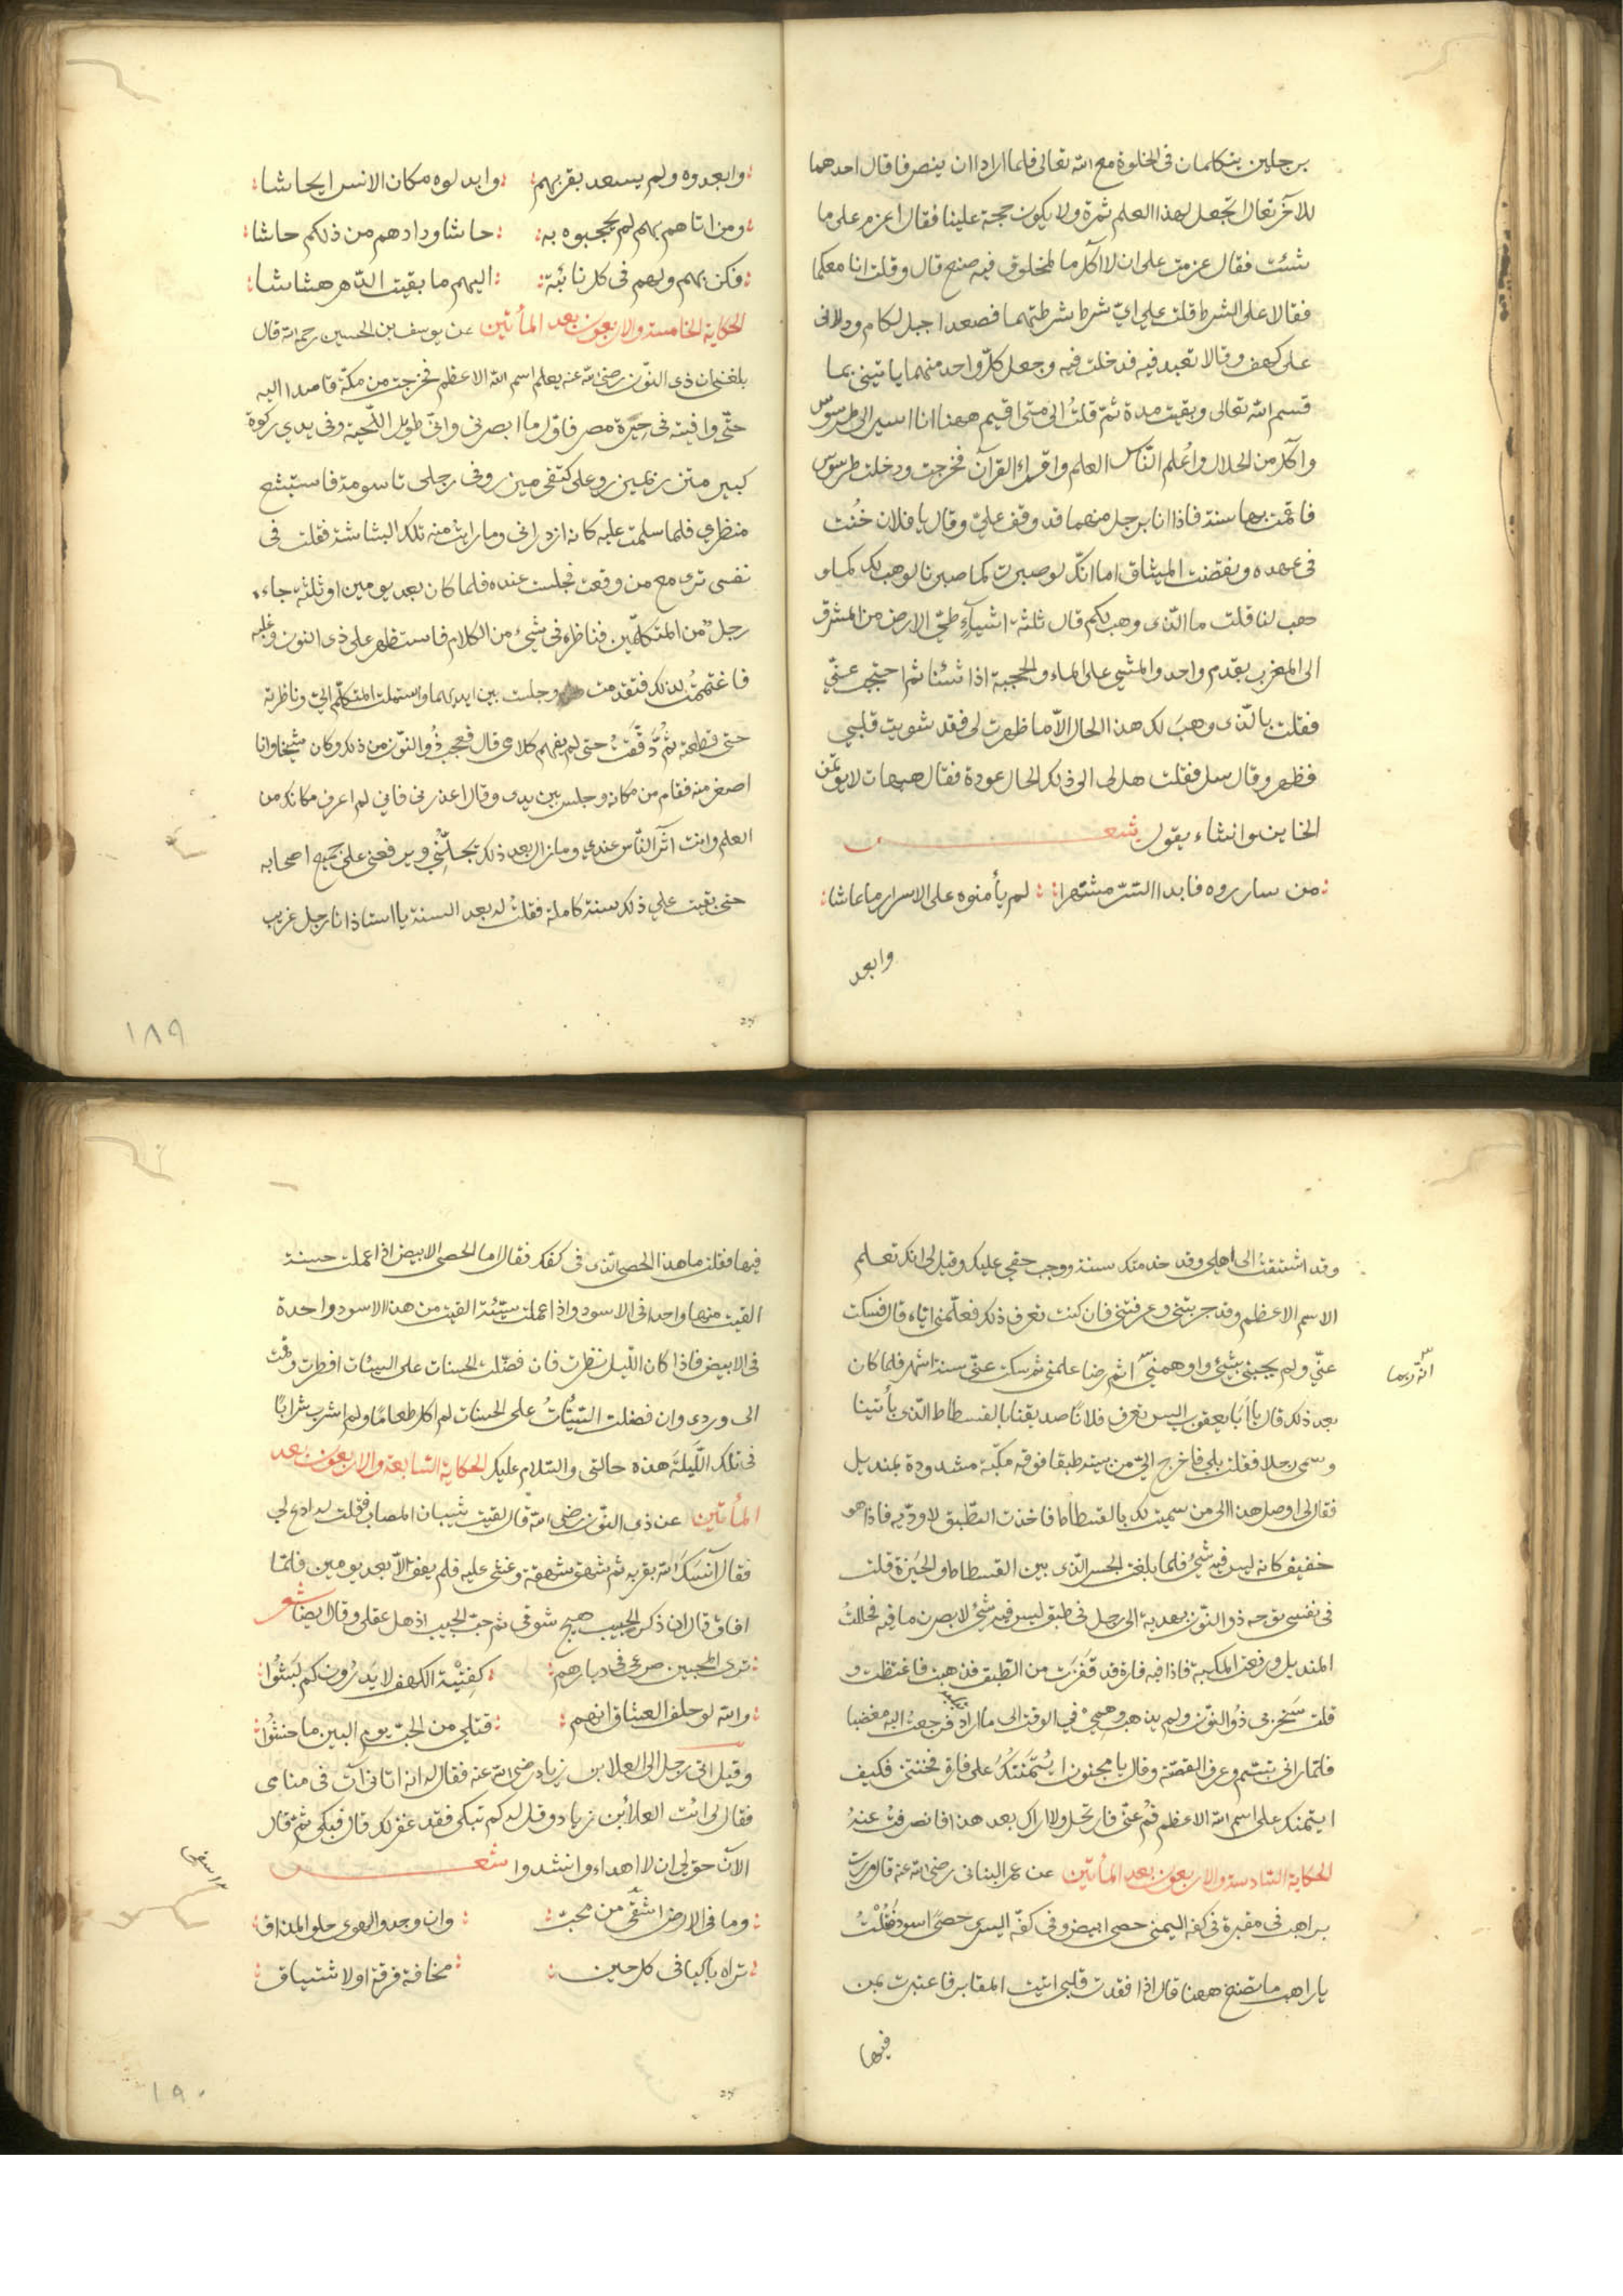 برجلين يتكلمان فى الخلوة مع الله تعالى فلما ارادا ان ينصرفا قال احدهما
للآخر تعال نجعل لهذا العلم ثمرة ولا يكون حجة علينا فقال اعزم على ما
شئت فقال عزمت على ان لا آكل ما لمخلوق فيه صنع قال وقلت انا معكما
فقالا على الشرط قلت على اىّ شرط شرطتهما فصعدا جبل لكام ودلانى
على كهف وقالا تعبد فيه فدخلت فيه وجعل كلّ واحد منهما ياتينى بما
قسم الله تعالى وبقيت مدة ثمّ قلتُ الى متى اقيم ههنا انا اسير الى طرسوس
وآكل من الحلال واعُلم النّاس العلم واقراء القرآن فخرجت ودخلت طرسوس
فاقمت بها سنة فاذا انا برجل منهما قد وقف علىّ وقال يا فلان خُنت
فى عهده ونقضت الميثاق اما انّك لو صبرت كما صبرنا لوهب لك كما و
هب لنا قلت ما الّذى وهب لكم قال ثلثه اشيآءٍ طىّ الارض من المشرق
الى المغرب بقدم واحد والمشى على الماء والحجبة اذا شئنا ثم احتجب عنّي
فقلت بالّذى وهبَ لك هذا الحال الاّ ما ظهرت لى فقد شويت قلبي
فظهر وقال سل فقلت هل لى الى ذلك الحال عودة فقال هيهات لا يؤتمن
الخاين وانشاء يقول شعر
من سارروه فابدا السّرّ مشتهرا لم يأمنوه على الاسرار ما عاشا
وابعد
وابعدوه ولم يسعد بقربهم وابدلوه مكان الانس ايحاشا
ومن اتاهم بهم لم يحجبوه به حاشا ودادهم من ذلكم حاشا
فكن بهم ولهم فى كل نائبة اليهم ما بقيت الدّهر هشاشا
الحكاية الخامسة والاربعون بعد المأتين عن يوسف بن الحسين رحمه الله قال
بلغنى ان ذى النوّن رضى الله عنه يعلم اسم الله الاعظم فخرجت من مكّة قاصدا اليه
حتّى وافيته فى جيزة مصر فاوّل ما ابصرنى وانى طويل اللّحية وفى يدي ركوة
كبير متزر بمئزر وعلى كتفى مئزر وفى رجلى تاسومة فاستبشع
منظري فلما سلمت عليه كانه ازدرانى وما رايت منه تلك البشاشة فقلت فى
نفسى ترى مع من وقعت فجلست عنده فلما كان بعد يومين او ثلثة جاءه
رجلٌ من المتكلّمين فناظره فى شيئ من الكلام فاستظهر على ذى النون وغلبه
فاغتممُت لذلك فتقدمت وجلست بين ايديهما واستملت المتكلّم الىّ وناظرته
حتى قطعته ثمّ دقّقتُ حتى لم يفهم كلامى قال فعجب ذُو النوّن من ذلك وكان شيخا وانا
اصغر منه فقام من مكانه وجلس بين يدى وقال اعذرنى فاني لم اعرف مكانك من
العلم وانت آثر النّاس عندي وما زال بعد ذلك يجلّنُي ويرفعنى على جميع اصحابه
حتى بقيت على ذلك سنة كاملة فقلتُ له بعد السنة يا استاذ انا رجل غريب
١٨٩
وقد اشتقتُ الى اهلى وقد خدمتك سنة ووجب حقى عليك وقيل لى انك تعلم
الاسم الاعظم وقد جربتنى وعرفتنى فان كنت تعرف ذلك فعلّمنى ايّاه قال فسكت
عنّي ولم يجبنى بشيئ واوهمنيّ انّه ربما علمني ثم سكت عنّى ستة اشهر فلما كان
انّه ربما
بعد ذلك قال يا اَبَا يعقوب اليس تعرف فلانًا صديقنا بالفسطاط الّذى يأتينا
وسمّى رجلا فقلت بلى فاخرج الىّ من بيته طبقا فوقه مكبّة مشدودة بمنديل
فقال لى اوصل هذا الى من سميت لك بالفسطاط فاخذت الطّبق لاودّيه فاذا هو
خفيف كانه ليس فيه شيئ فلما بلغت الجسر الّذى بين الفسطاط والجيَزة قلت
فى نفسى يوجه ذو النوّن بهدية الى رجل فى طبق ليس فيه شيئ لابصرن ما فيه فحللتُ
المنديل ورفعت المكبة فاذا فيه فارة قد قفزت من الطّبق فذهبت فاغتظت و
قلت سَخِر بى ذوُ النوّن ولم يذهب وهمي في الوقت الى ما اراد فرجعتُ اليه مغضبا
فلمّا رانى تبسّم وعرف القصّة وقال يا مجنون ائتمنتكُ على فارة فخنتنى فكيف
ايتمنك على اسم الله الاعظم قُم عنّى فارتحل ولا اراك بعد هذا فانصرفتُ عنهُ
الحكاية السّادسة والاربعون بعد المأتين عن عمر البنانى رضى الله عنه قال مررت
براهب فى مقبرة فى كفه اليمنى حصى ابيض وفى كفّه اليسرى حصًى اسود فقُلْتُ
يا راهب ما تصنع ههنا قال اذا فقدت قلبي اتيت المقابر فاعتبرت بمن
فيها
فيها فقلت ما هذا الحصى الّذى فى كفك فقال اما الحصى الابيض اذا عملت حسنة
القيت منها واحدا فى الاسود واذا عملت سيّئة القيت من هذا الاسود واحدة
فى الابيض فاذا كان اللّيل نظرت فان فضّلت الحسنات على السيئات افطرت وقمت
الى وردى وان فضلت السّيّئاتُ على الحسنات لم اكل طعامًا ولم اشرب شرابًا
فى تلك اللّيلَة هذه حالتى والسّلام عليك الحكاية السّابعة والاربعون بعد
المأتين عن ذى النوّن رضى الله قال لقيت شيبان المصاب فقلت له ادع لي
فقال آنسَكَ الله بقربه ثم شهق شهقة وغشى عليه فلم يفق الاّ بعد يومين فلمّا
افاق قال ان ذكر الحبيب هيج شوقى ثم حبّ الحبيب اذهل عقلى وقال ايضًا شعر
ترى المحبين صرعى فى ديارهم كفِتْيَة الكهف لا يَدرُون كم لَبثُوا
والله لو حلف العشاق انهم قتلى من الحبّ يوم البين ما حنثُوا
وقيل اتى رجل الى العلا بن زياد رضى الله عنه فقال له انه اتانى آت فى منامى
فقال لى ائت العلاء بن زياد وقل له كم تبكى فقد غفر لك قال فبكى ثمّ قال
الآن حق لى ان لا اهداء وانشدوا شعر
وما فى الارض اشقَى من محبّ وان وجد الهوى حلو المذاق
تراه باكيا فى كل حين مخافة فرقة او لاشتياق
١٩٠